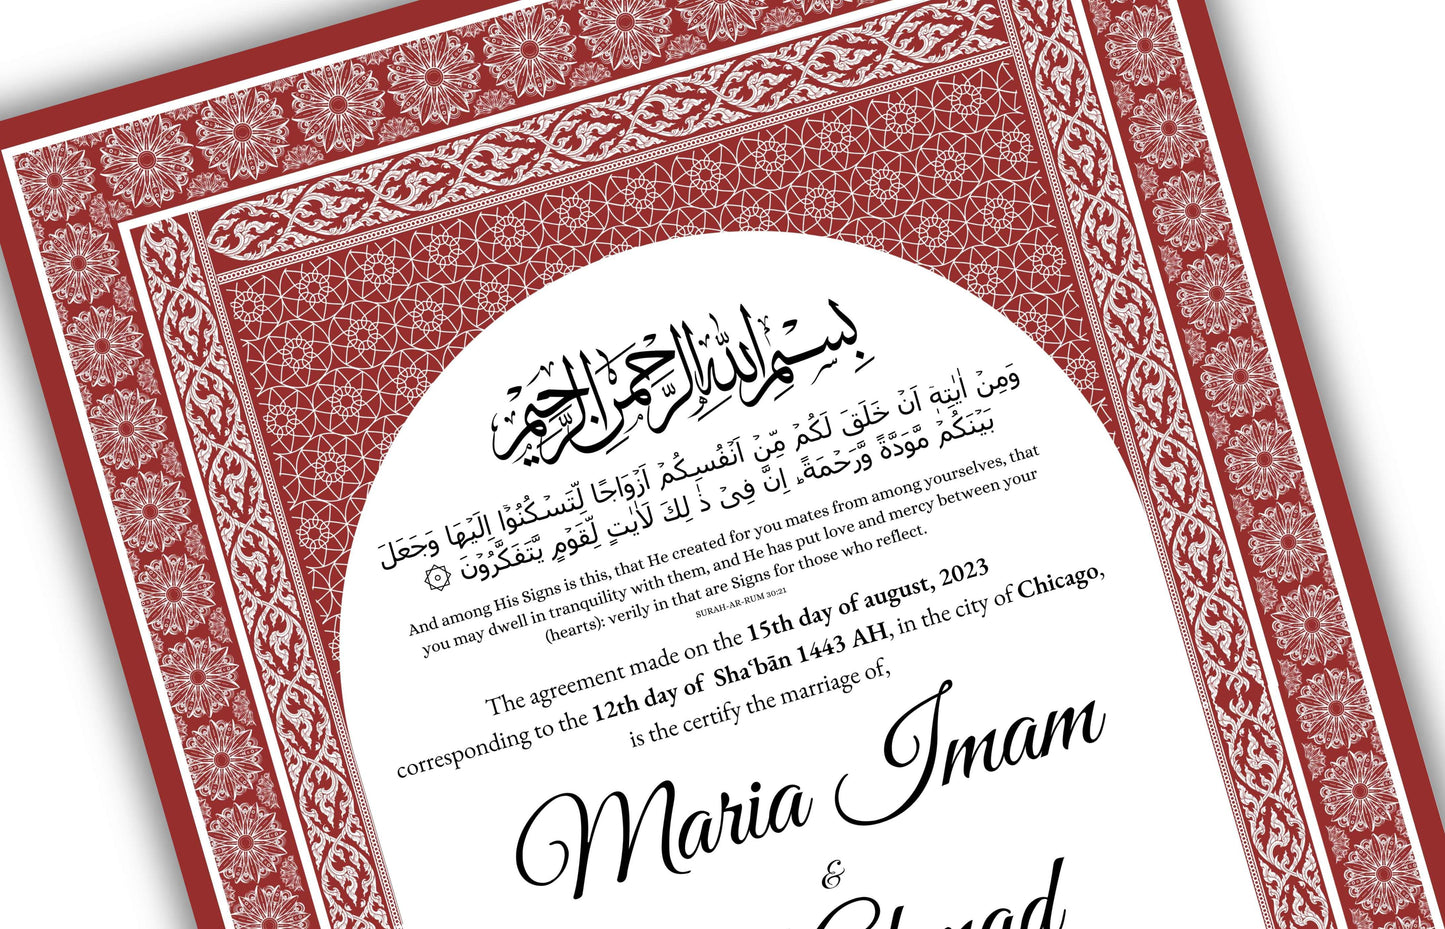 بِسْمِ اللهِ الرَّحْمَنِ الرَّحِيمِ
وَمِنْ اٰيٰتِهٖٓ اَنْ خَلَقَ لَكُمْ مِّنْ اَنْفُسِكُمْ اَزْوَاجًا لِّتَسْكُنُوْٓا اِلَيْهَا وَجَعَلَ
بَيْنَكُمْ مَّوَدَّةً وَّرَحْمَةً ؕ اِنَّ فِيْ ذٰ لِكَ لَاٰيٰتٍ لِّقَوْمٍ يَّتَفَكَّرُوْنَ ۞
And among His Signs is this, that He created for you mates from among yourselves, that
you may dwell in tranquility with them, and He has put love and mercy between your
(hearts): verily in that are Signs for those who reflect.
SURAH-AR-RUM 30:21
The agreement made on the 15th day of august, 2023
corresponding to the 12th day of Shaʿbān 1443 AH, in the city of Chicago,
is the certify the marriage of,
Maria Imam
&